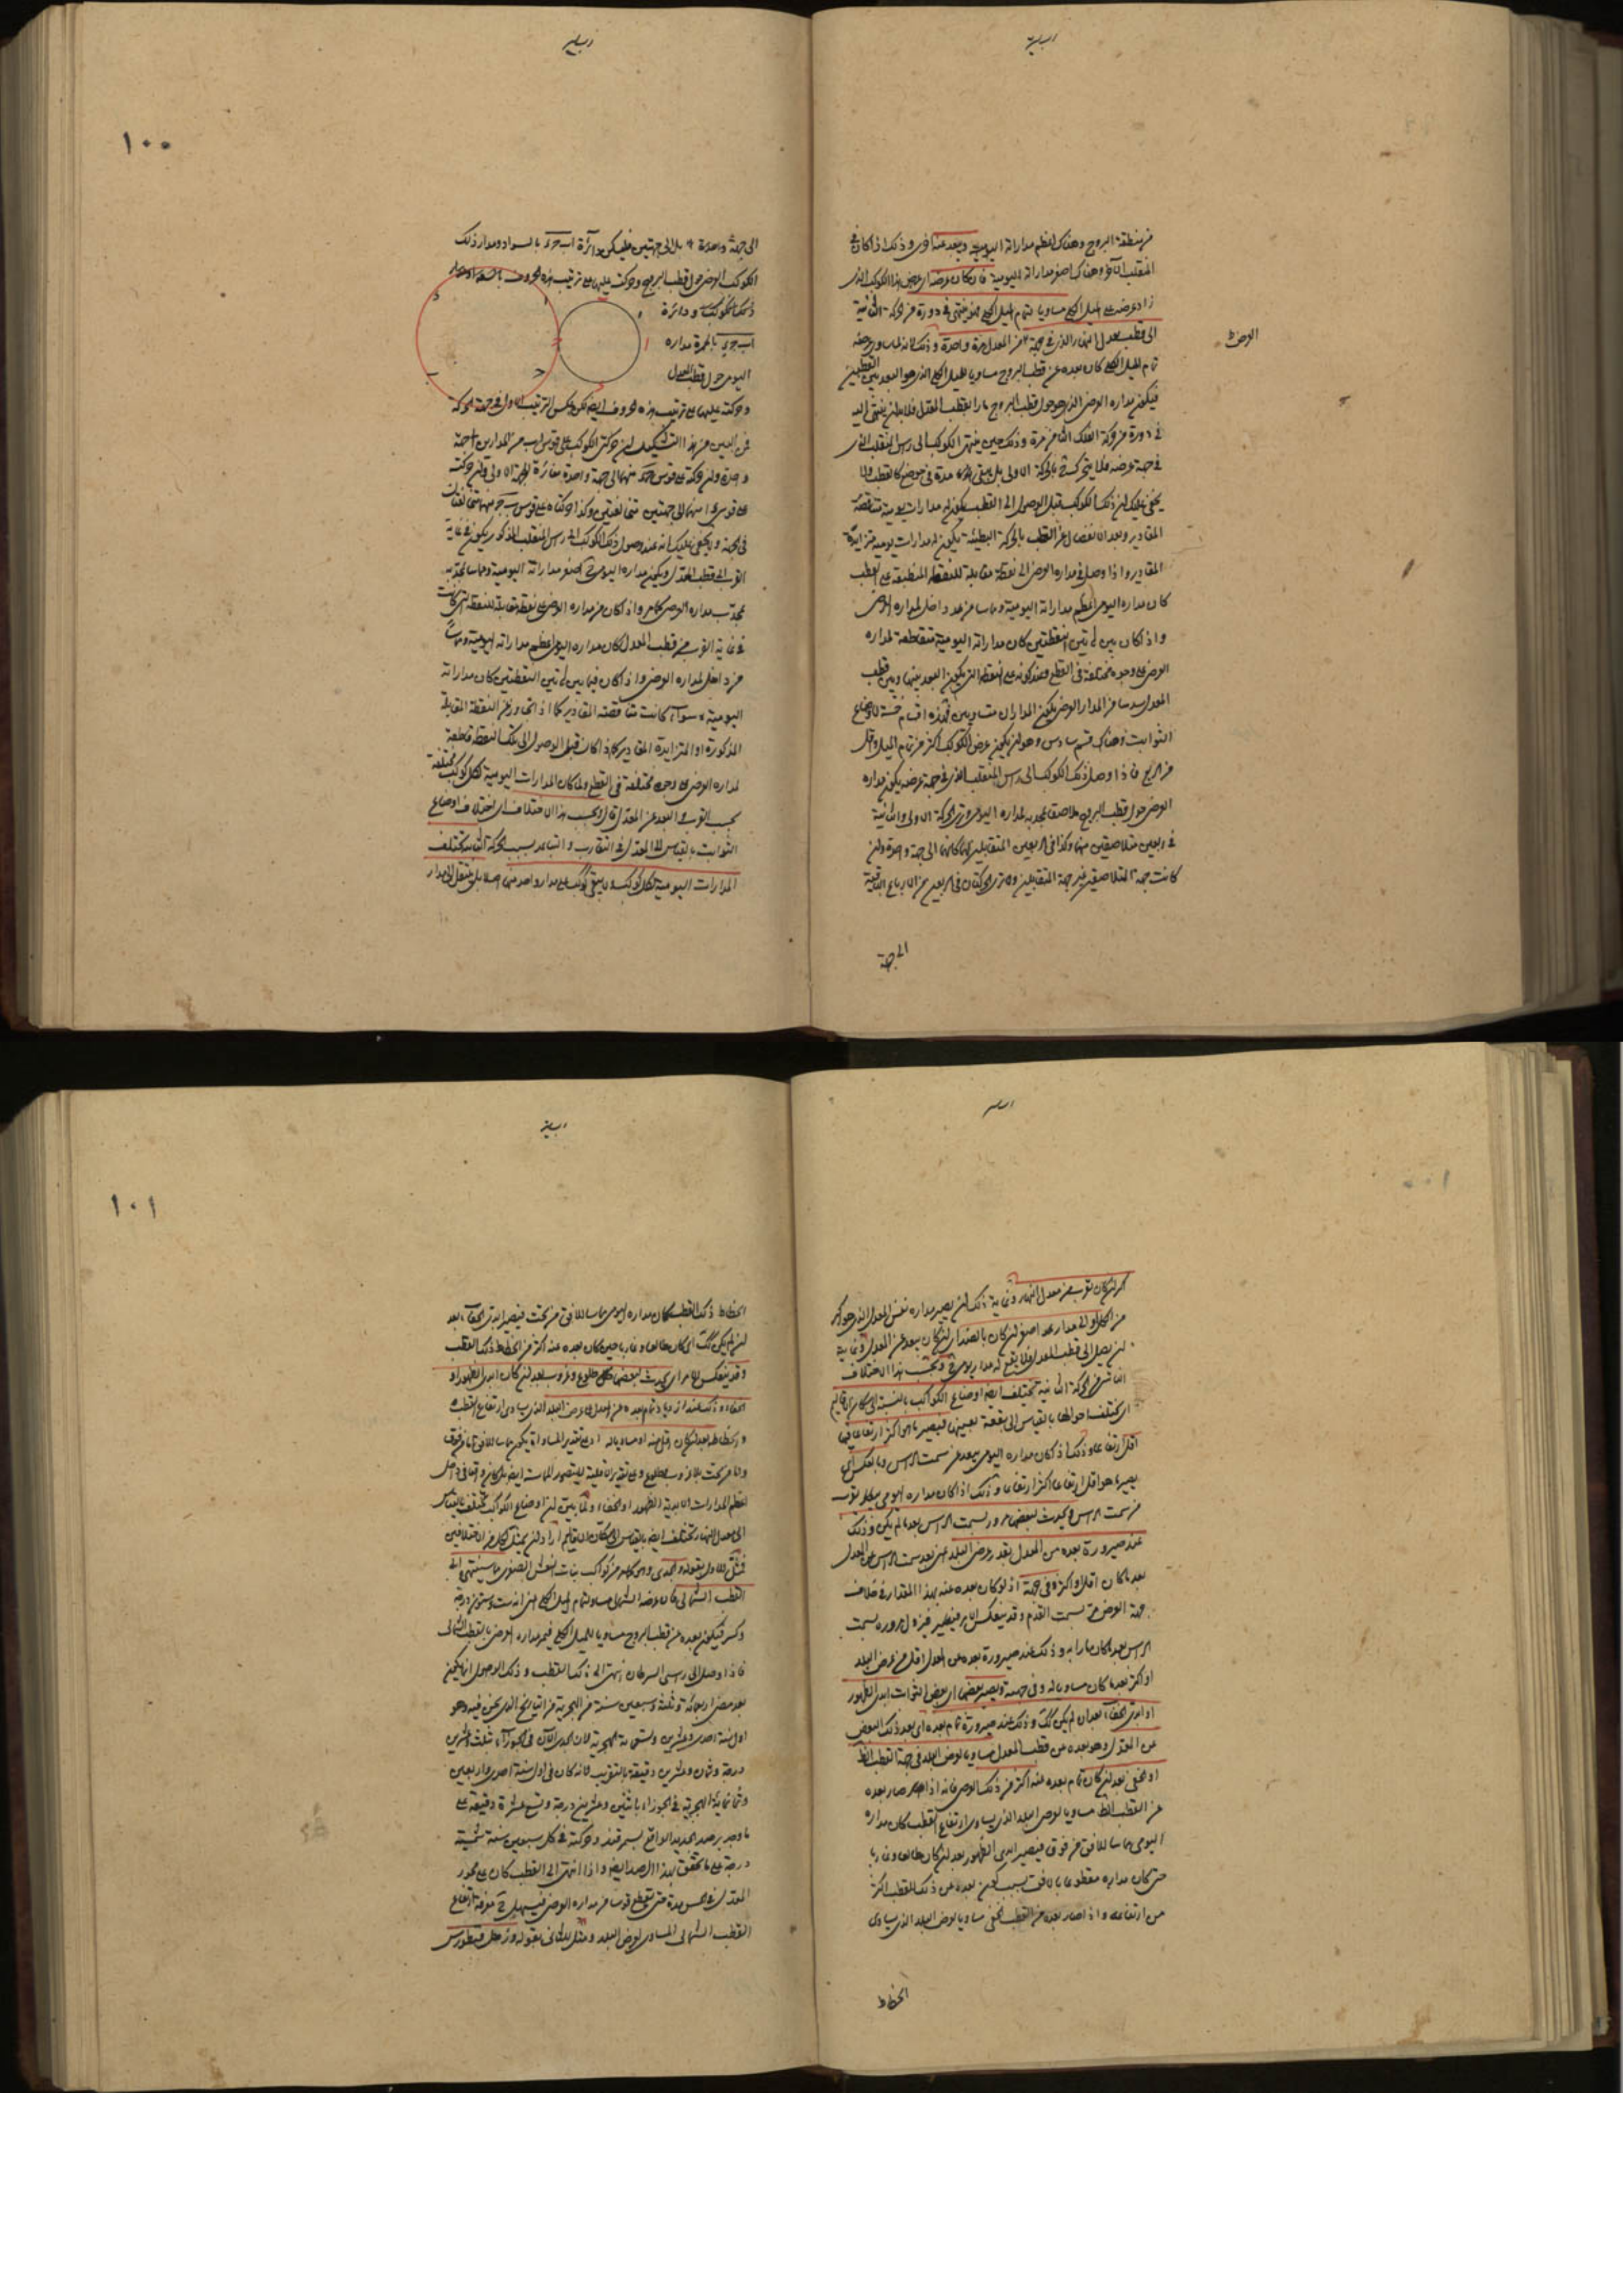 من منطقة البروج وهناك اعظم مداراته اليومية ويبعد عنه اخرى وذلك اذا كان في
المنقلب الآخر وهناك اصغر مداراته اليومية فان كان عرضه اى عرض هذا الكوكب الذى
زاد عرضه على الميل الكلى مساويا لتمام الميل الكلى فهو ينتهى فى دورة من الحركة الثانية
الى قطب معدل النهار الذى فى جهته من المعدل مرة واحدة وذلك لانه لما ساوى عرضه
تمام الميل الكلى كان بعده عن قطب البروج مساويا للميل الكلى الذى هو البعد بين القطبين
فيكون مداره العرضى الذى هو حول قطب البروج مارا بقطب المعدل فلا بد ان ينتهى اليه
فى دورة من حركة الفلك الثامن مرة وذلك حين ينتهى الكوكب الى رأس المنقلب الذى
فى جهة عرضه فلا يتحرك ح بالحركة الاولى بل يبقى مدة فى موضع كالقطب ولا
يخفى عليك ان ذلك الكوكب قبل الوصول الى القطب يكون له مدارات يومية متناقصة
المقادير وبعد الانفصال عن القطب بالحركة البطيئة يكون له مدارات يومية متزايدة
المقادير واذا وصل فى مداره العرضى الى نقطة مقابلة للنقطة المنطبقة على القطب
كان مداره اليومى اعظم مداراته اليومية ومماسا من داخل لمداره العرضى
واذا كان بين هاتين النقطتين كان مداراته اليومية متقاطعة لمداره
العرضى على وجوه مختلفة فى القطع وعند كونه على النقطة التى يكون البعد بينها وبين قطب
المعدل سدسا من المدار العرضى يكون المداران متساويين فهذه اقسام خمسة لاوضاع
الثوابت وهناك قسم سادس وهو ان يكون عرض الكوكب اكثر من تمام الميل واقل
من الربع فاذا وصل ذلك الكوكب الى رأس المنقلب الذى فى جهة عرضه يكون مداره
العرضى حول قطب البروج ملاصقا بمحدبه لمداره اليومى وترى الحركة الاولى والثانية
فى ربعين متلاصقين منها وكذا فى الربعين المتقابلين كلتاهما الى جهة واحدة وان
كانت جهة المتلاصقين غير جهة المتقابلين وترى الحركتان فى الربعين من الارباع الباقية
الى جهة
العرضى
١٠٠
الى جهة واحدة بل الى جهتين فليكن دائرة ا ب ج د بالسواد مدار ذلك
الكوكب العرضى حول قطب البروج وحركته عليها على ترتيب هذه الحروف
ذلك الكوكب ودائرة
ا ب ج د بالحمرة مداره
اليومى حول قطب المعدل
وحركته عليها على ترتيب هذه الحروف ايضا لكن عكس الترتيب الاول فى جهة الحركة
واحدة وان حركته على قوس منهما الى جهة واحدة مغايرة للجهة الاولى وان حركته
فى الجهة ولا يخفى عليك انه عند وصول ذلك الكوكب الى رأس المنقلب المذكور يكون فى غاية
القرب الى قطب المعدل ويكون مداره اليومى ح اصغر مداراته اليومية ومماسا بمحدبه
لمحدب مداره العرضى كما مر واذا كان من مداره العرضى على نقطة مقابلة للنقطة التى كانت
فى غاية القرب من قطب المعدل كان مداره اليومى اعظم مداراته اليومية ومماسا
من داخل لمداره العرضى واذا كان فيما بين هاتين النقطتين كان مداراته
اليومية سواء كانت متناقصة المقادير كما اذا تجاوز عن النقطة المقابلة
المذكورة او المتزايدة المقادير كما اذا كان قبل الوصول الى تلك النقطة قاطعة
لمداره العرضى على وجوه مختلفة فى القطع ولما كان المدارات اليومية لكل كوكب مختلفة
بحسب القرب والبعد عن المعدل قال وبحسب هذا الاختلاف اى اختلاف اوضاع
الثوابت بالقياس الى المعدل فى التقارب والتباعد بسبب الحركة الثانية تختلف
المدارات اليومية لكل كوكب ولا يبقى كوكب على مدار واحد منها اصلا بل ينتقل الى مدار
اكبر ان كان يقرب من معدل النهار وغاية ذلك ان يصير مداره نفس المعدل الذى هو اكبر
من الكل او الى مدار اصغر ان كان بالضد اى ان كان يبعد عن المعدل وغاية
ان يصل الى قطب المعدل فلا يقع له مدار يومى ح وبحسب هذا الاختلاف
الناشئ من الحركة الثانية تختلف ايضا اوضاع الكواكب بالنسبة الى سكان الاقاليم
اى تختلف احوالها بالقياس الى بقعة بعينها فيصير ما هو اكثر ارتفاعا فيها
اقل ارتفاعا وذلك اذا كان مداره اليومى يبعد عن سمت الرأس وبالعكس اى
يصير ما هو اقل ارتفاعا اكثر ارتفاعا وذلك اذا كان مداره اليومى يقرب
من سمت الرأس ويحدث لبعضها مرور بسمت الرأس بعد ما لم يكن وذلك
عند صيرورة بعده من المعدل بقدر عرض البلد اعنى بعد سمت الرأس عن المعدل
بعد ما كان اقل او اكثر وفى جهته اذ لو كان بعده عنه بهذا المقدار فى خلاف
جهة العرض مر بسمت القدم وقد ينعكس الامر فيصير فيزول مروره بسمت
الرأس بعد ما كان مارا به وذلك عند صيرورة بعده عن المعدل اقل من عرض البلد
او اكثر بعد ما كان مساويا له وفى جهته ويصير بعضها اى بعض الثوابت ابدى الظهور
او ابدى الخفاء بعد ان لم يكن كذلك وذلك عند صيرورة تمام بعده اى بعد ذلك البعض
عن المعدل وهو بعده من قطب المعدل مساويا لعرض البلد فى جهة القطب الظاهر
او الخفى بعد ان كان تمام بعده عنه اكثر من ذلك العرض فانه اذا صار بعده
عن القطب الظاهر مساويا لعرض البلد الذى يساوى ارتفاع القطب كان مداره
اليومى مماسا للافق من فوق فيصير ابدى الظهور بعد ان كان طالعا وغاربا
حين كان مداره مقطوعا بالافق بسبب كون بعده عن ذلك القطب اكثر
من ارتفاعه واذا صار بعده عن القطب الخفى مساويا لعرض البلد الذى يساوى
انحطاط
١٠١
انحطاط ذلك القطب كان مداره اليومى مماسا للافق من تحت فيصير ابدى الخفاء بعد
ان لم يكن كذلك اى كان طالعا وغاربا حين كان بعده عنه اكثر من انحطاط ذلك القطب
وقد ينعكس الامر اى يحدث لبعضها طلوع وغروب بعد ان كان ابدى الظهور او
الخفاء وذلك عند ازدياد تمام بعده عن المعدل على عرض البلد الذى يساوى ارتفاع القطب
وانحطاطه بعد ان كان اقل منه او مساويا له اذ على تقدير المساواة يكون مماسا للافق اما من فوق
اعظم المدارات الابدية الظهور او الخفاء ولما بين ان اوضاع الكواكب تختلف بالقياس
الى معدل النهار وتختلف ايضا بالقياس الى سكان الاقاليم اراد ان يمثل لكل من الاختلافين
فمثل للاول بقوله والجدى وهو كوكب من كواكب بنات النعش الصغرى ما سينتهى الى
القطب الشمالى فان عرضه الشمالى مساو لتمام الميل الكلى اعنى انه ست وستون درجة
وكسر فيكون بعده عن قطب البروج مساويا للميل الكلى فيمر مداره العرضى بالقطب الشمالى
فاذا وصل الى رأس السرطان انتهى الى ذلك القطب وذلك الوصول انما يكون
بعد مضى اربعمائة وثلثة وسبعين سنة من الهجرية من التاريخ الذى نحن فيه وهو
اول سنة احدى وعشرين وتسعمائة الهجرية لان الجدى الآن فى الجوزاء ثلث وعشرين
درجة وثمان وعشرين دقيقة بالتقريب لانه كان فى اول سنة احدى واربعين
وثمانمائة الهجرية فى الجوزاء باثنين وعشرين درجة وتسع عشرة دقيقة على
ما وجد برصد الجديد الواقع بسمرقند وحركته فى كل سبعين سنة شمسية
درجة على ما تحقق بهذا الرصد ايضا واذا انتهى الى القطب كان على محور
المعدل فى مدة حتى يقطع قوسا من مداره العرضى فيسهل ح معرفة ارتفاع
القطب الشمالى المساوى لعرض البلد ومثل للثانى بقوله ورجل قنطورس